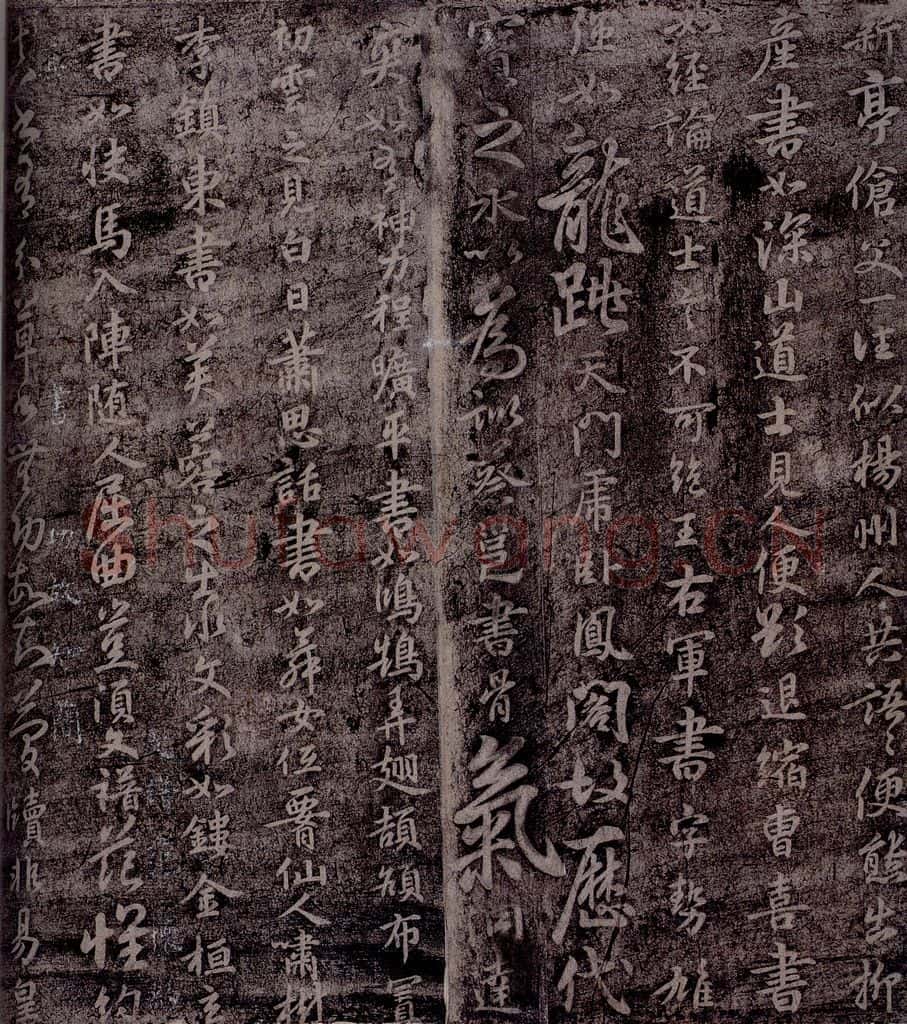 新亭傖父一往似楊州人共語〻便態出柳
產書如深山道士見人便欲退縮曹喜書
如經論道士言不可絕王右軍書字勢雄
強如龍跳天門虎臥鳳閣故歷代
寶之永以為訓蔡邕書骨氣洞達
爽如有神力程曠平書如鴻鵠弄翅頡頏布置
初雲之見白日蕭思話書如舞女低腰仙人嘯樹
李鎮東書如芙蓉之出水文彩如鏤金桓玄
書如快馬入陣隨人屈曲豈須文譜范懷約
書有分草書無功故知簡牘非易皇
shufawang.CN